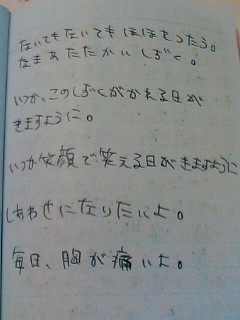 ないてもないてもほほをつたう。
なまあたたかいしずく。
いつか、このしずくがかれる日が
きますように。
いつか笑顔で笑える日がきますように
しあわせになりたいよ。
毎日、胸が痛いよ。